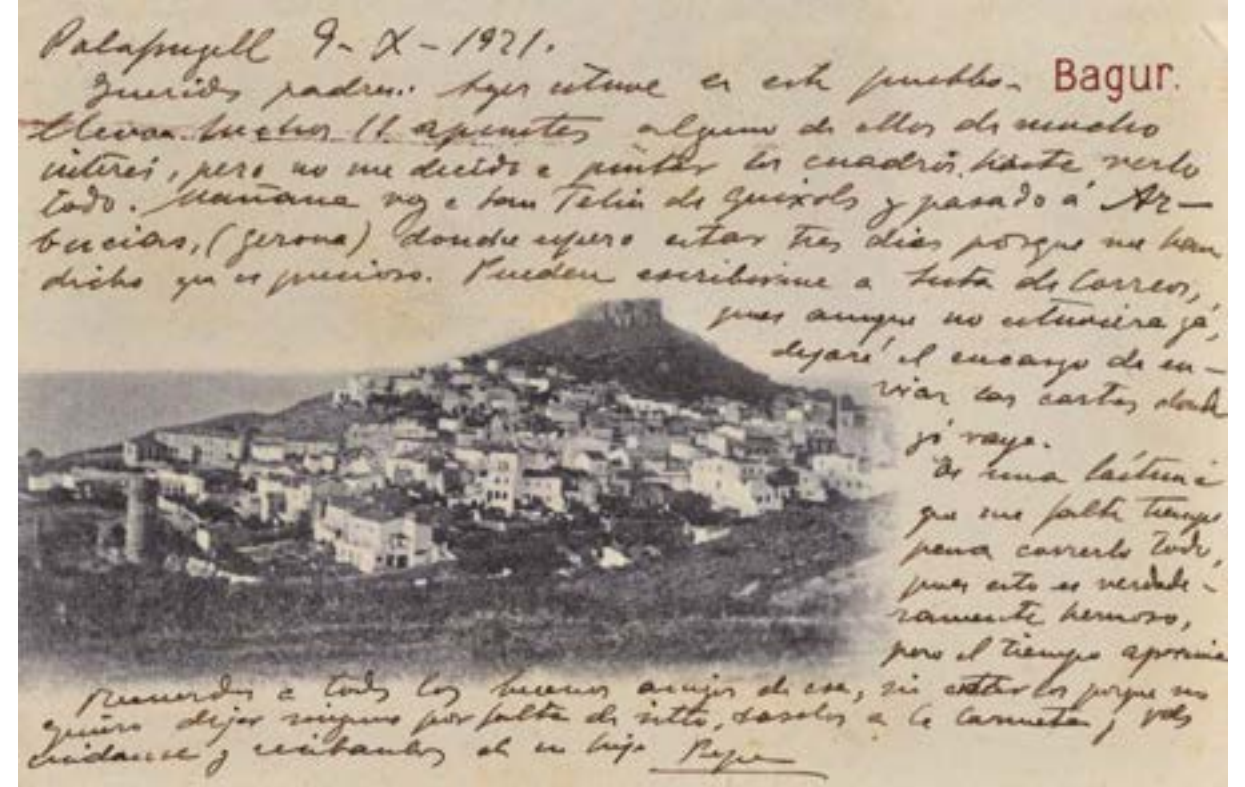 Palafrugell 9-X-1921.
Bagur.
Queridos padres: Ayer estuve en este pueblo.
Llevo hechos 11 apuntes alguno de ellos de mucho
interés, pero no me decido a pintar los cuadros, hasta verlo
todo. Mañana voy a San Feliu de Guixols y pasado á Ar-
bucias, (Gerona) donde espero estar tres dias porque me han
dicho que es precioso. Pueden escribirme a lista de Correos,
pues aunque no estuviera yá,
dejaré el encargo de en-
viar las cartas donde
yó vaya.
Es una lástima
que me falte tiempo
para correrlo todo,
pues esto es verdade-
ramente hermoso,
pero el tiempo apremia
Recuerdos a todos los buenos amigos de esa, sin citarlos porque no
quiero dejar ninguno por falta de sitio, a la y Vds
cuidanse y reciban de su hijo Pepe